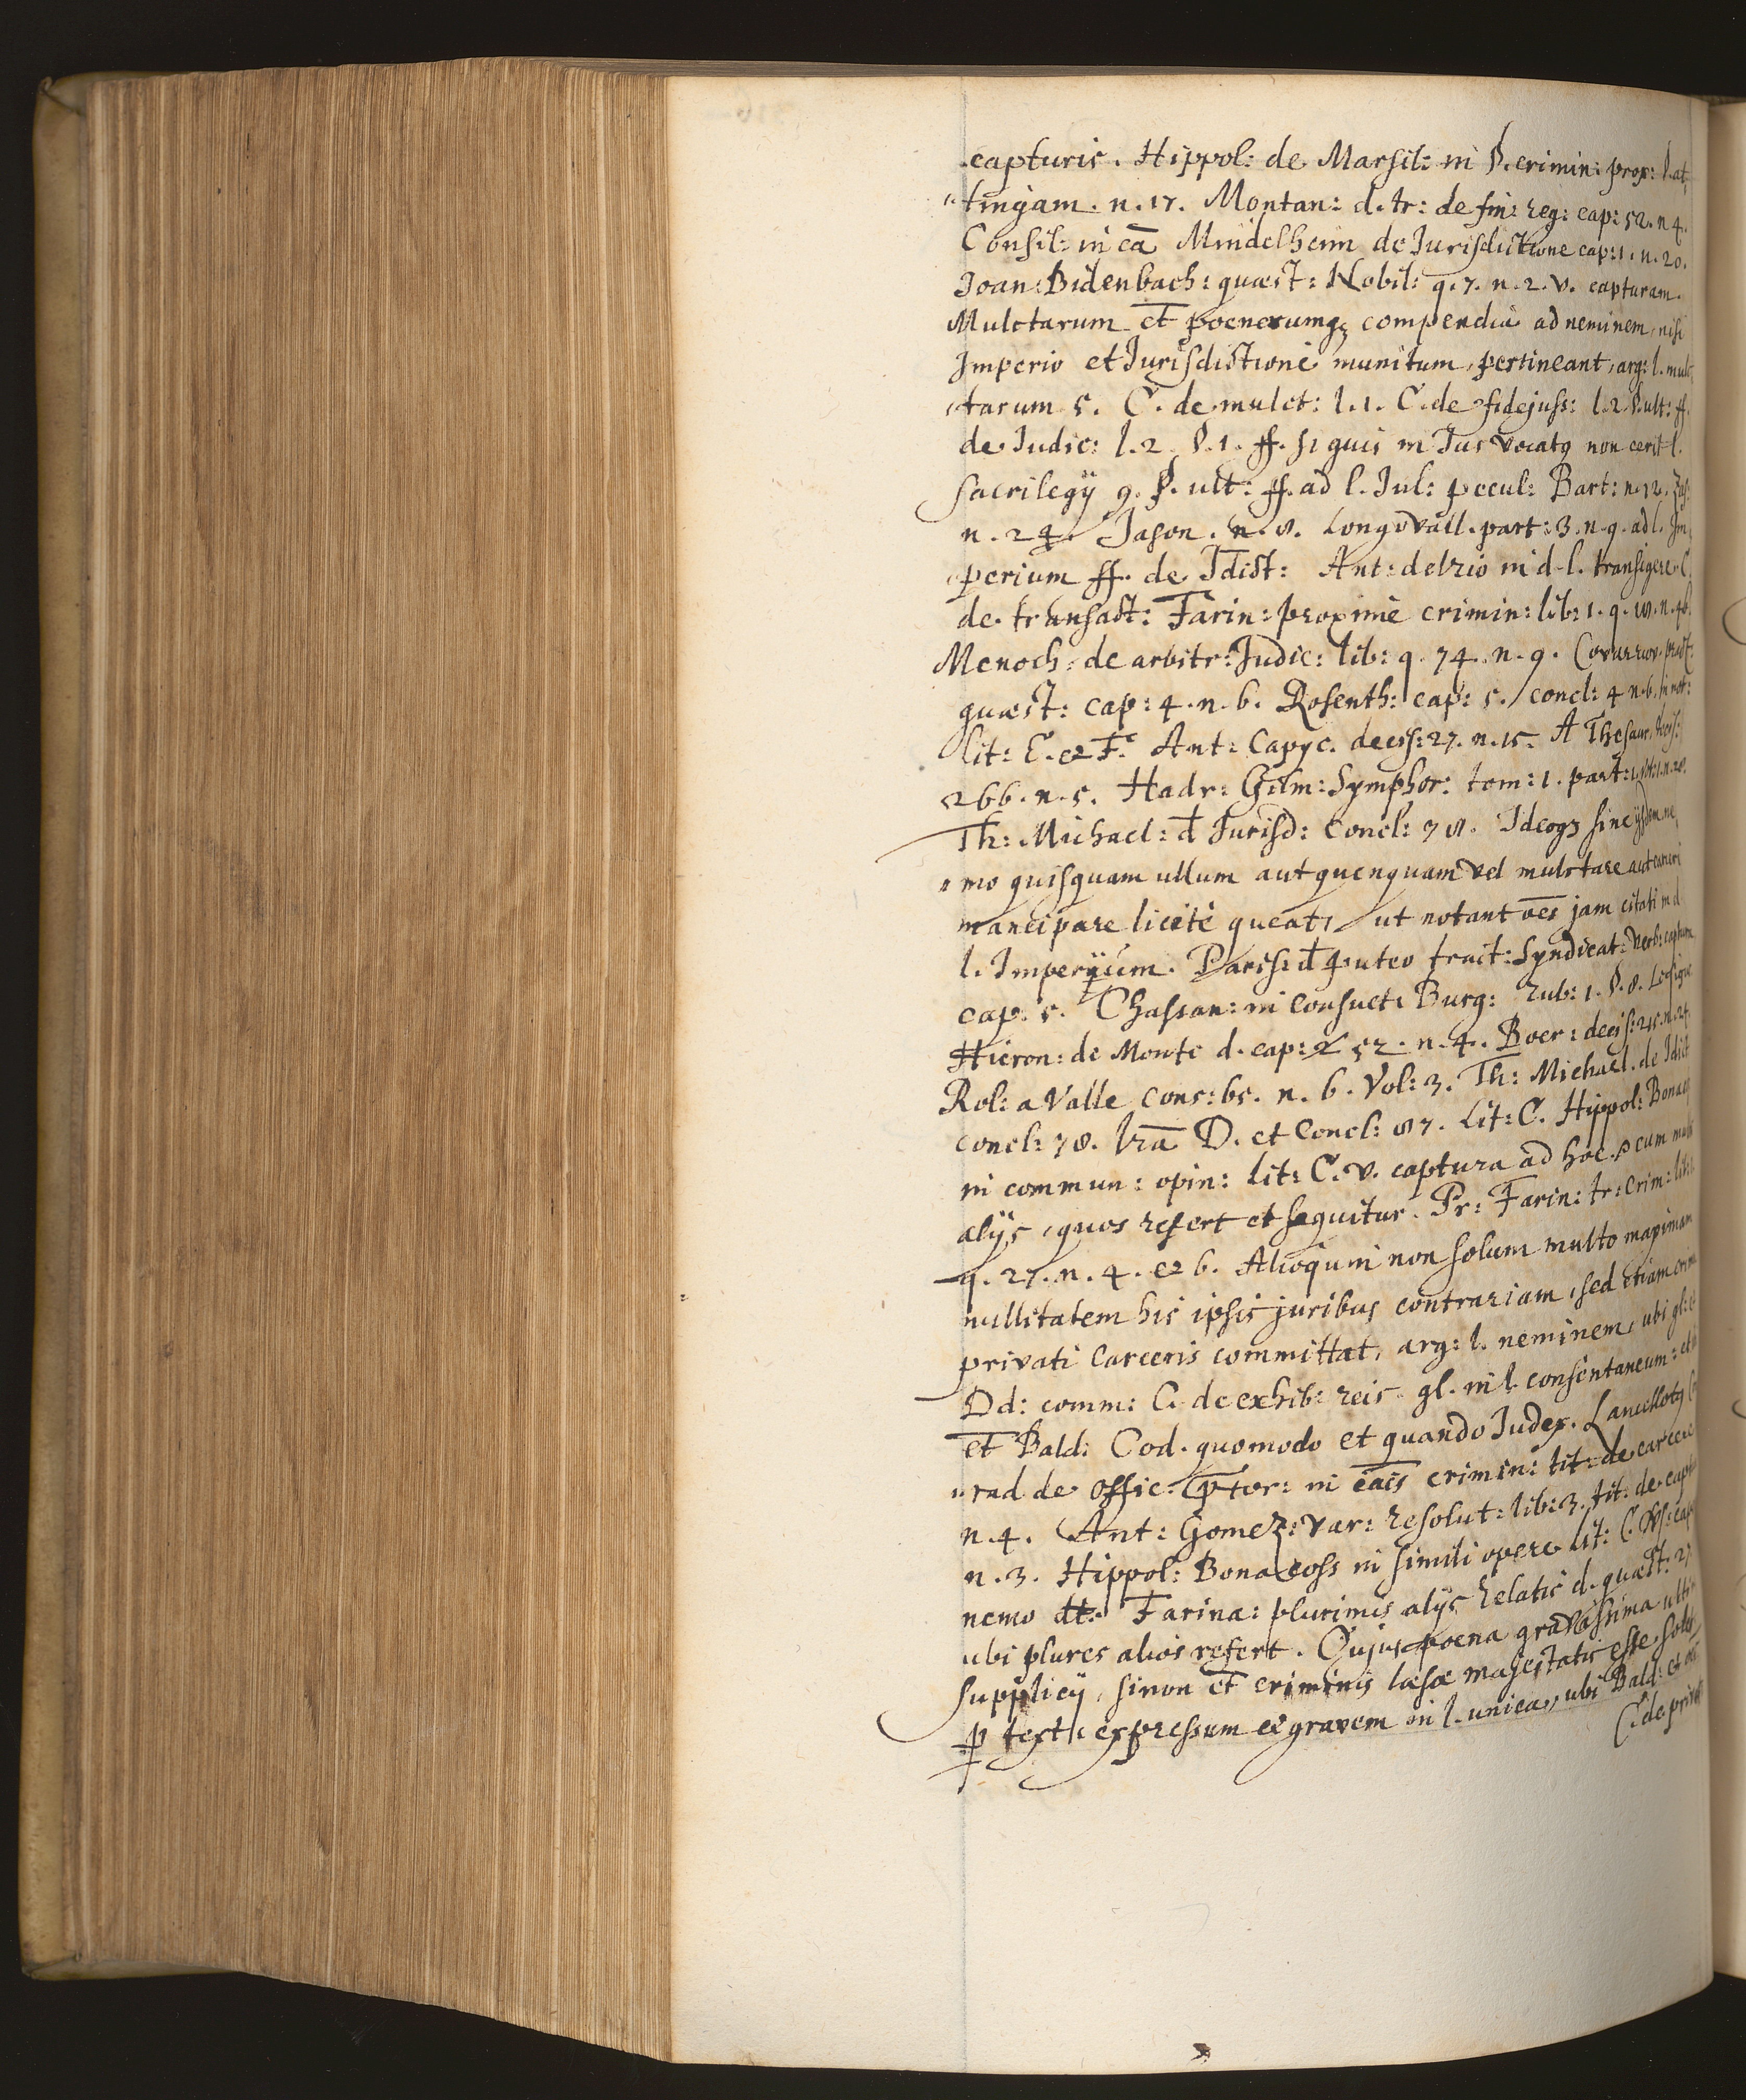 capturis. Hippol: de Marsil: in §. crimin: prox: §. at,
,,tingam. n. 17. Montan: d. tr: de fin: reg: cap: 52. n 4.
Consil: in cā Mindelheim de Jurisdictione cap: 1. n. 20.
Joan: Bidenbach: quæst: Nobil: q. 7. n. 2. v. capturam.
Mulctarum et poenerumq₃ compendia ad neminem, nisi
Imperio et Jurisdictione munitum, pertineant, arg: l. mulc,
,tarum 5. C. de mulct: l. 1. C. de fidejuss: l. 2 §. ult: ff.
de Judic: l. 2. §. 1. ff. si quis in Jus vocatq non ierit l.
sacrilegÿ 9. §. ult: ff. ad l. Jul: pecul: Bart: n. 12. Zas:
n. 24. Jason. n. 8. Longovall. part: 3. n. 9. ad l. Im,
,perium ff. de Jdict: Ant: delrio in d. l. transigere C.
de transact: Farin: proximè crimin: lib: 1. q. 18. n. 46.
Menoch: de arbitr: Judic: lib: q. 74. n. 9. Covarruv: pract:
quæst: cap: 4. n. 6. Rosenth: cap: 5. concl: 4 n. 6. in not:
lit: E. et F. Ant: Capyc. decis: 27. n. 15. A Thesaur. decis:
266. n. 5. Hadr: Gilm: Symphor: tom: 1. part: 1. n. 28.
Th: Michael: đ Jurisd: Concl: 78. Ideoq₃ sine ÿsdem ne,
,,mo quisquam ullum aut quenquam vel mulctare aut carceri
mancipare licitè queat, ut notant oēs jam citati in d.
l. Imperÿum. Paris: đ puteo tract: Syndicat: verb: captura
cap. 5. Chassan: in Consuet: Burg: rub: 1. §. 8.
Hieron: de Monte d. cap: 52. n. 4. Boer: decis: 215. n. 24.
Rol: a Valle cons: 65. n. 6. Vol: 3. Th: Michael. de Jdict
concl: 78. lrā D. et Concl: 87. Lit: C. Hippol: Bonac
in commun: opin: lit: C. v. captura ad hoc. cum multis
alÿs, quos refert et sequitur. Pr: Farin: tr: crim: lib:
q. 27. n. 4. et 6. Alioquin non solum multo maximam
nullitatem his ipsis juribus contrariam, sed etiam crim
privati Carceris committat, arg: l. neminem, ubi gl: et
Dd: comm: C. de exhib: reis gl. in l. consentaneum: et
et Bald: Cod. quomodo et quando Judex. Lancillotq Co
,,rad de offic: Prtor: in cāis crimin: tit: de carcere
n. 4. Ant: Gomez: var: resolut: lib: 3. tit: de capt
n. 3. Hippol: Bonacoss in simili opere Lit: C. Vs: cap
nemo dt: Farina: plurimis alÿs relatis d. quæst: 27
ubi plures alios refert. Cujus poena gravissima ulti
supplicÿ, sinon et criminis læsæ majestatis esse solet
ꝑ text: expressum et gravem in l. unica, ubi Bald: et oēs
C. de privat